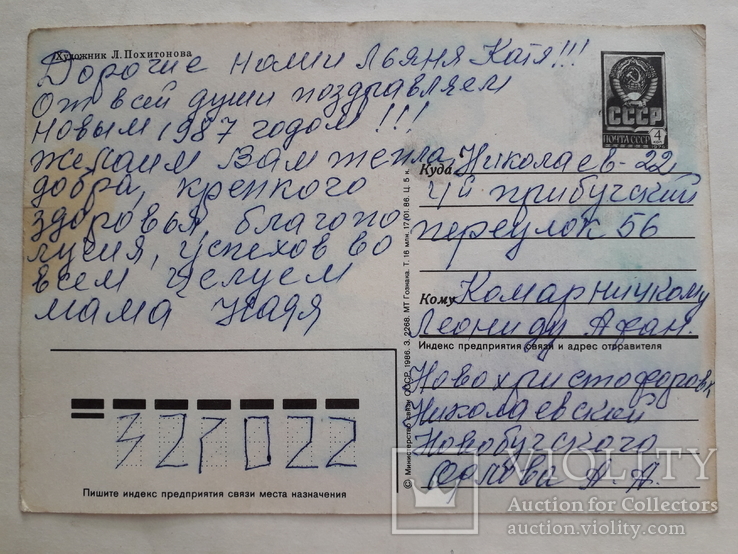 Художник Л. Похитонова
Дорогие наши Льяня Катя!!!
От всей души поздравляем
Новым 1987 годом!!!
желаим Вам тепла,
добра, крепкого
здоровья, благопо
лучия, успехов во
всем целуем
мама Надя
СССР
ПОЧТА СССР 4
Куда Николаев-22
4й прибугский
переулок 56
Кому Комарницкому
Леониду Афан.
Индекс предприятия связи и адрес отправителя
Новохристофоровк
Николаевской
Новобугского
Орлова А. А.
327022
Пишите индекс предприятия связи места назначения
© Министерство связи СССР, 1986. З. 2266. МТ Гознака. Т. 16 млн. 17/01.86. Ц. 5 к.
VIOLITY
Auction for Collectors
auction.violity.com